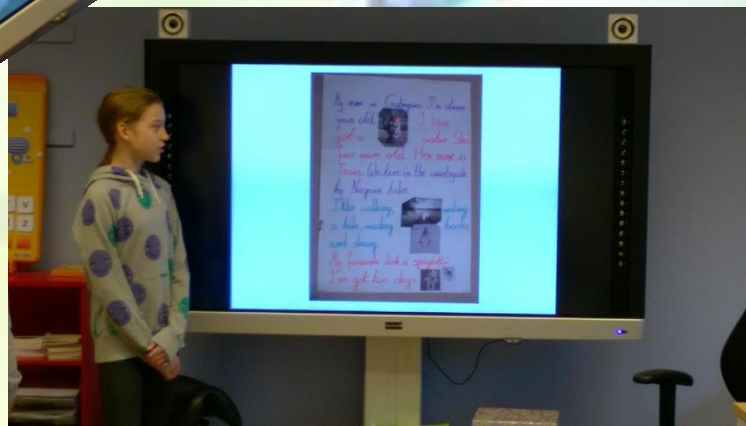 My name is I'm eleven
years old. I have
got a sister. She's
four years old. Her name is
We live in the countryside
by lake.
I like walking, riding
a bike, reading books
and skiing.
My favourite dish is spaghetti.
I've got two dogs.
V
Z